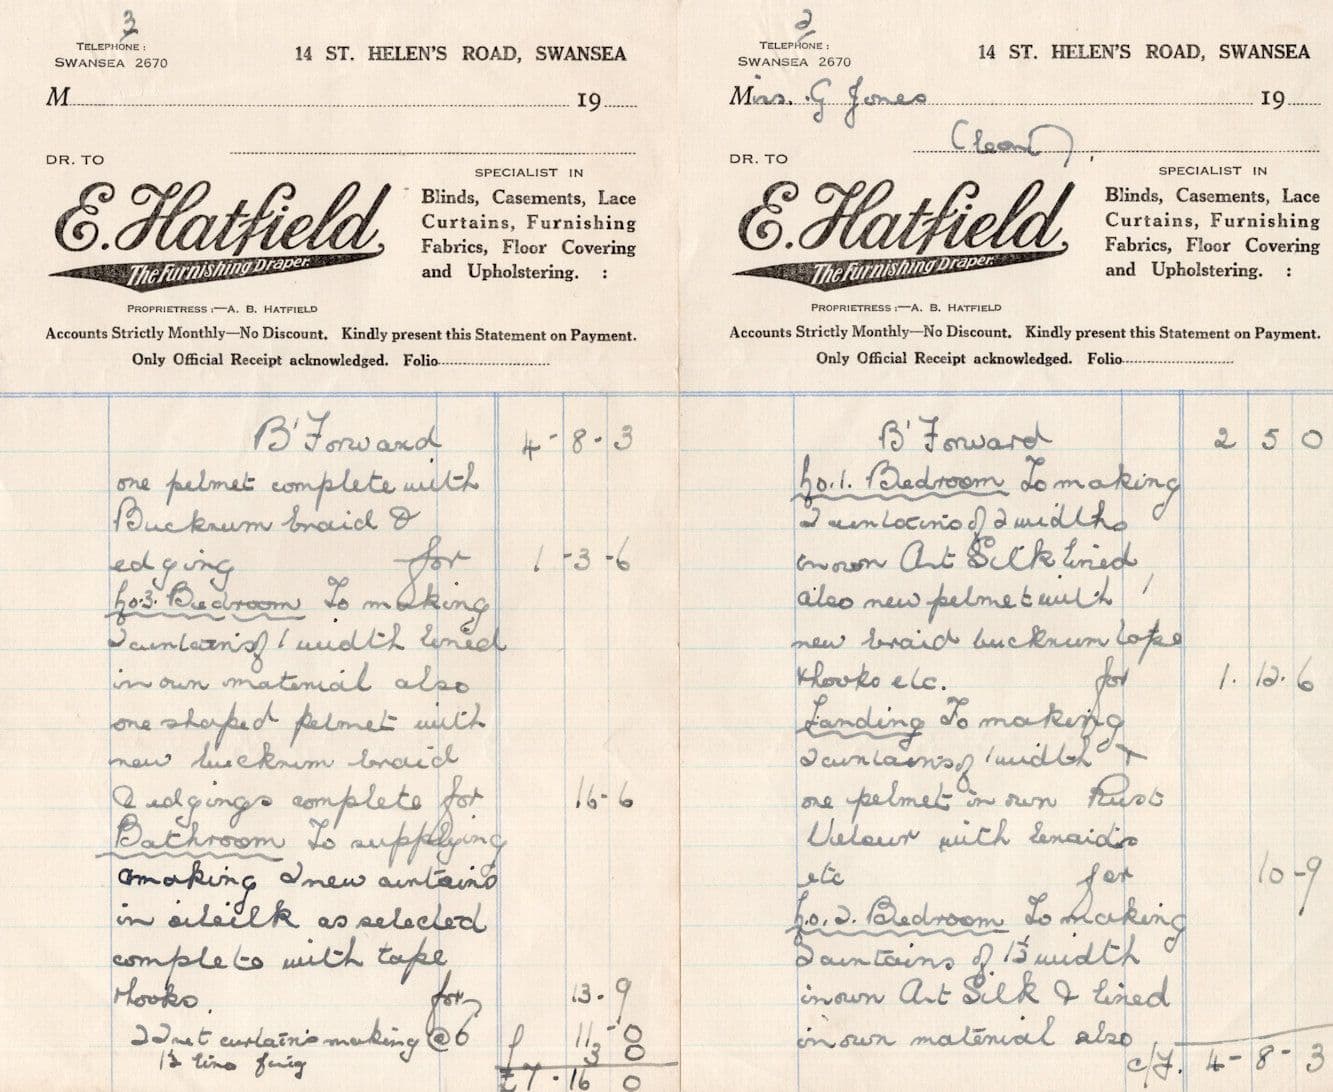 3
TELEPHONE :
SWANSEA 2670
14 ST. HELEN'S ROAD, SWANSEA
M 19
DR. TO
E. Hatfield,
The Furnishing Draper.
SPECIALIST IN
Blinds, Casements, Lace
Curtains, Furnishing
Fabrics, Floor Covering
and Upholstering. :
PROPRIETRESS :—A. B. HATFIELD
Accounts Strictly Monthly—No Discount. Kindly present this Statement on Payment.
Only Official Receipt acknowledged. Folio
B'Forward 4-8-3
one pelmet complete with
Buckrum braid &
edging for 1-3-6
No.3. Bedroom To making
2 curtains of 1 width lined
in own material also
one shaped pelmet with
new buckrum braid
& edgings complete for 16-6
Bathroom To supplying
& making 2 new curtains
in oilsilk as selected
complete with tape
& hooks. for 13-9
22 net curtains making @ 6 11-0
1½ 3 0
£7-16 0
2
TELEPHONE :
SWANSEA 2670
14 ST. HELEN'S ROAD, SWANSEA
Mrs. G Jones 19
DR. TO
E. Hatfield,
The Furnishing Draper.
SPECIALIST IN
Blinds, Casements, Lace
Curtains, Furnishing
Fabrics, Floor Covering
and Upholstering. :
PROPRIETRESS :—A. B. HATFIELD
Accounts Strictly Monthly—No Discount. Kindly present this Statement on Payment.
Only Official Receipt acknowledged. Folio
B'Forward 2 5 0
No.1. Bedroom To making
2 curtains of 2 widths
in own Art Silk lined
also new pelmet with
new braid buckrum tape
& hooks etc. for 1.12.6
Landing To making
2 curtains of 1 width &
one pelmet in own Rust
Velour with braids
etc for 10-9
No.2. Bedroom To making
2 curtains of 1½ width
in own Art Silk & lined
in own material also
c/f. 4-8-3